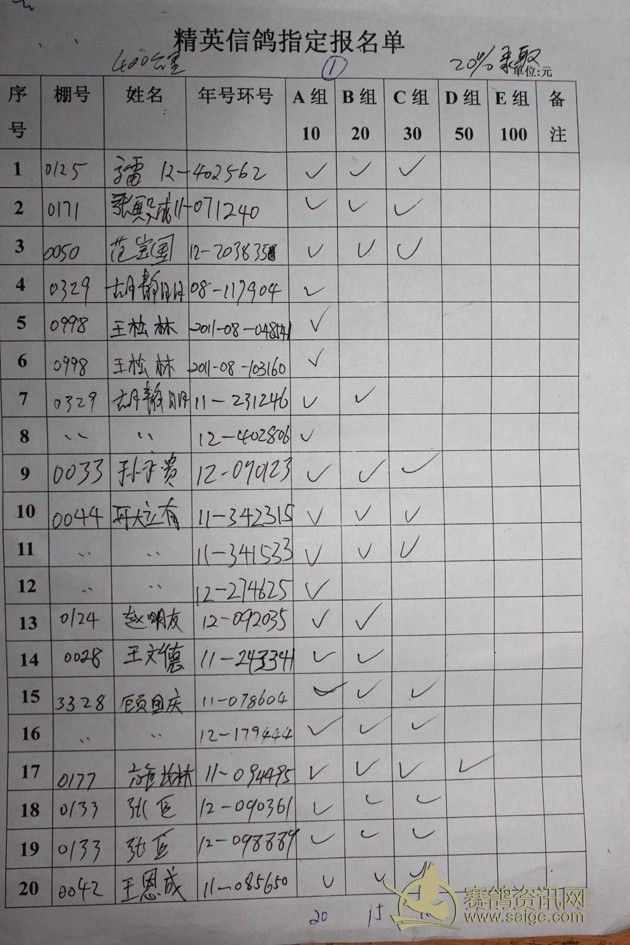 精英信鸽指定报名单
400公里 ① 20%录取
单位:元
序号 棚号 姓名 年号环号 A组10 B组20 C组30 D组50 E组100 备注
1 0125 12-402562 ✓ ✓ ✓
2 0171 11-071240 ✓ ✓ ✓
3 0050 范宝国 12-203835 ✓ ✓ ✓
4 0329 胡静明 08-117904 ✓
5 0998 王松林 2011-08-048541 ✓
6 0998 王松林 2011-08-103160 ✓
7 0329 胡静明 11-231246 ✓ ✓
8 〃 〃 12-402806 ✓
9 0033 孙守贵 12-070123 ✓ ✓ ✓
10 0044 立有 11-342315 ✓ ✓ ✓
11 〃 〃 11-341533 ✓ ✓ ✓
12 〃 〃 12-274625 ✓
13 0124 赵明友 12-092035 ✓ ✓
14 0028 王文德 11-243341 ✓ ✓
15 3328 顾国庆 11-078604 ✓ ✓ ✓
16 〃 〃 12-179444 ✓ ✓ ✓
17 0177 林 11-094495 ✓ ✓ ✓ ✓
18 0133 张臣 12-090361 ✓ ✓ ✓
19 0133 张臣 12-098889 ✓ ✓ ✓
20 0042 王恩成 11-085650 ✓ ✓ ✓
20 15
赛鸽资讯网
www.saige.com